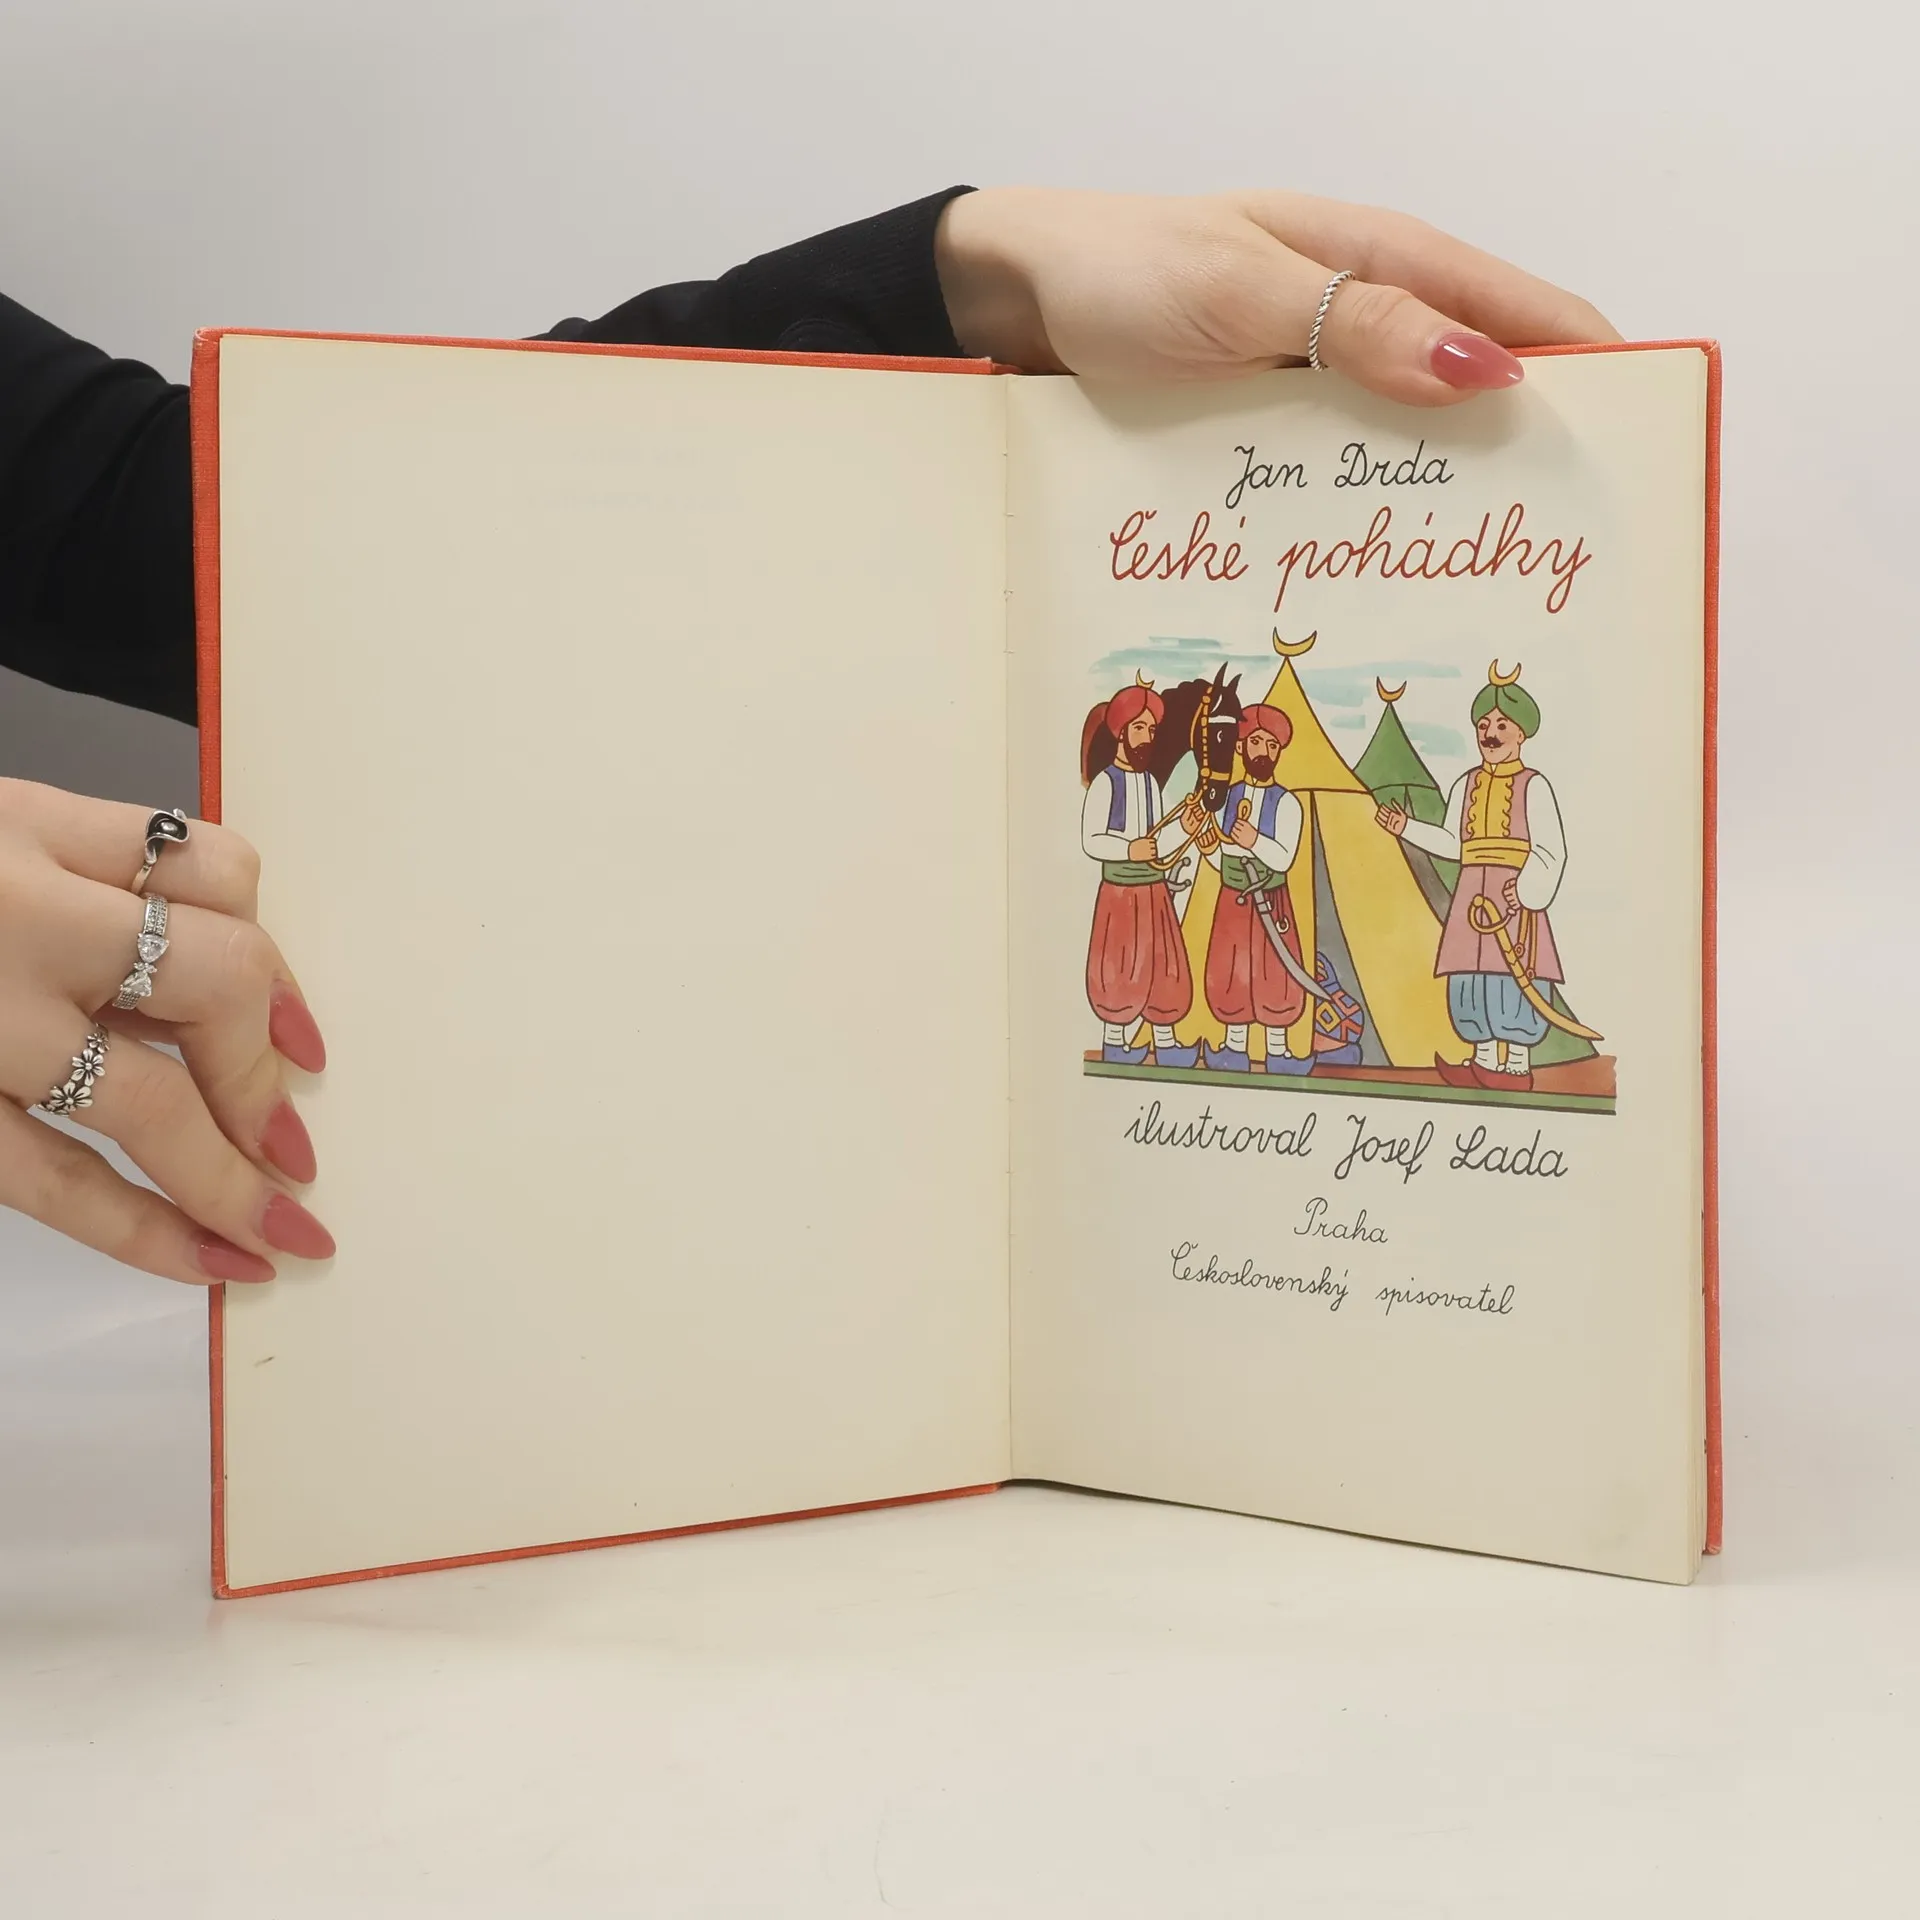 Jan Drda
České pohádky
ilustroval Josef Lada
Praha
Československý spisovatel